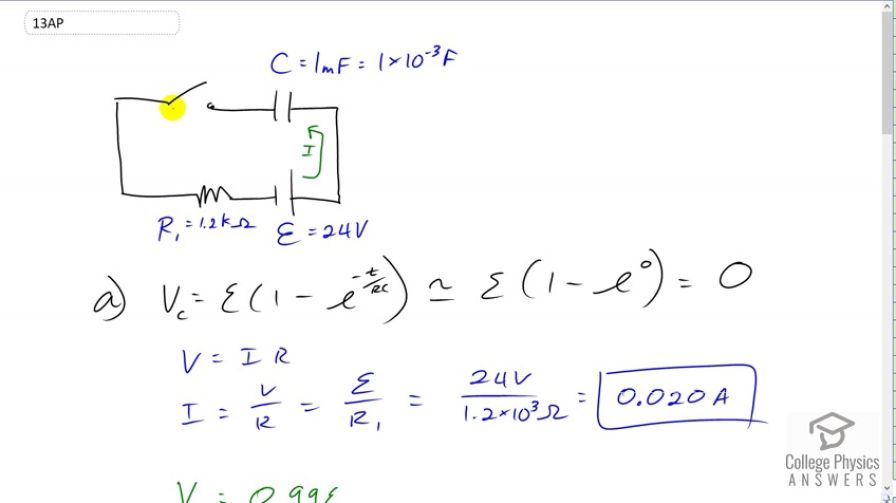 13AP
C = 1mF = 1×10⁻³F
I
R₁ = 1.2kΩ
ℰ = 24V
a) V_c = ℰ(1 - e^(-t/RC)) ≃ ℰ(1 - e⁰) = 0
V = I R
I = V/R = ℰ/R₁ = 24V/1.2×10³Ω = 0.020A
V = 0.99ℰ
College Physics
ANSWERS